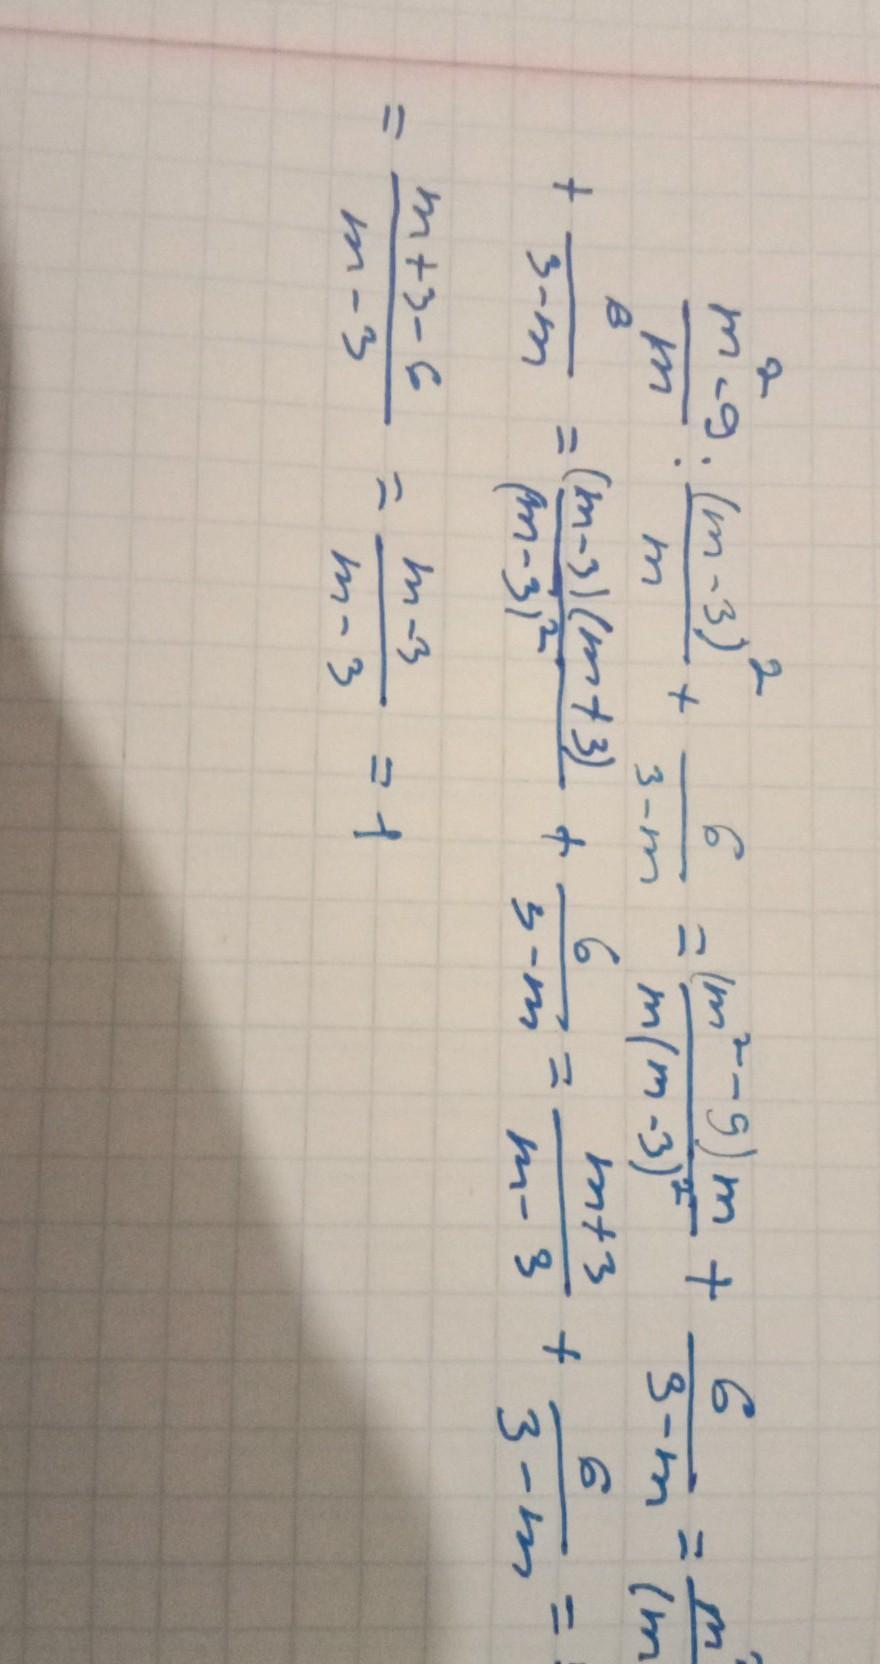 (m² - 9)/m : (m - 3)²/m + 6/(3 - m) = (m² - 9)m/m(m - 3)² + 6/(3 - m) =
+ 6/(3 - m) = (m - 3)(m + 3)/(m - 3)² + 6/(3 - m) = (m + 3)/(m - 3) + 6/(3 - m) =
= (m + 3 - 6)/(m - 3) = (m - 3)/(m - 3) = 1